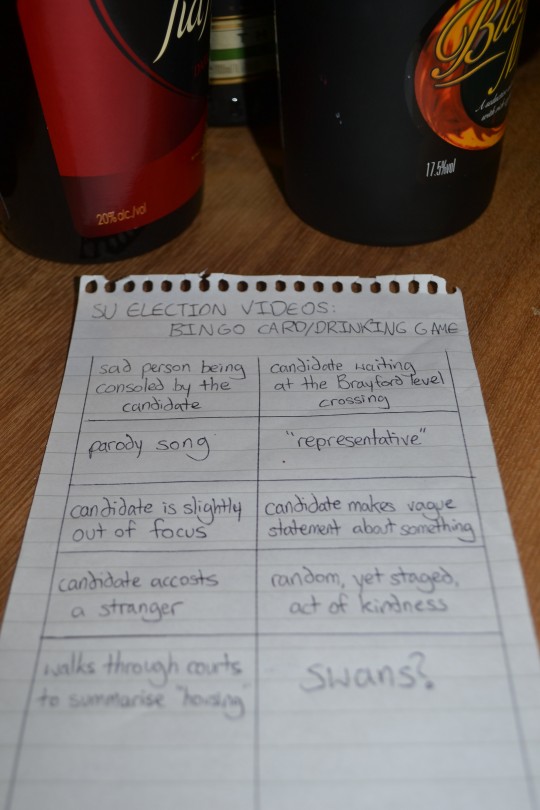 20% alc./vol
17.5%vol
SU ELECTION VIDEOS:
BINGO CARD/DRINKING GAME
sad person being
consoled by the
candidate
candidate waiting
at the Brayford level
crossing
parody song
"representative"
candidate is slightly
out of focus
candidate makes vague
statement about something
candidate accosts
a stranger
random, yet staged,
act of kindness
walks through courts
to summarise "housing"
swans?